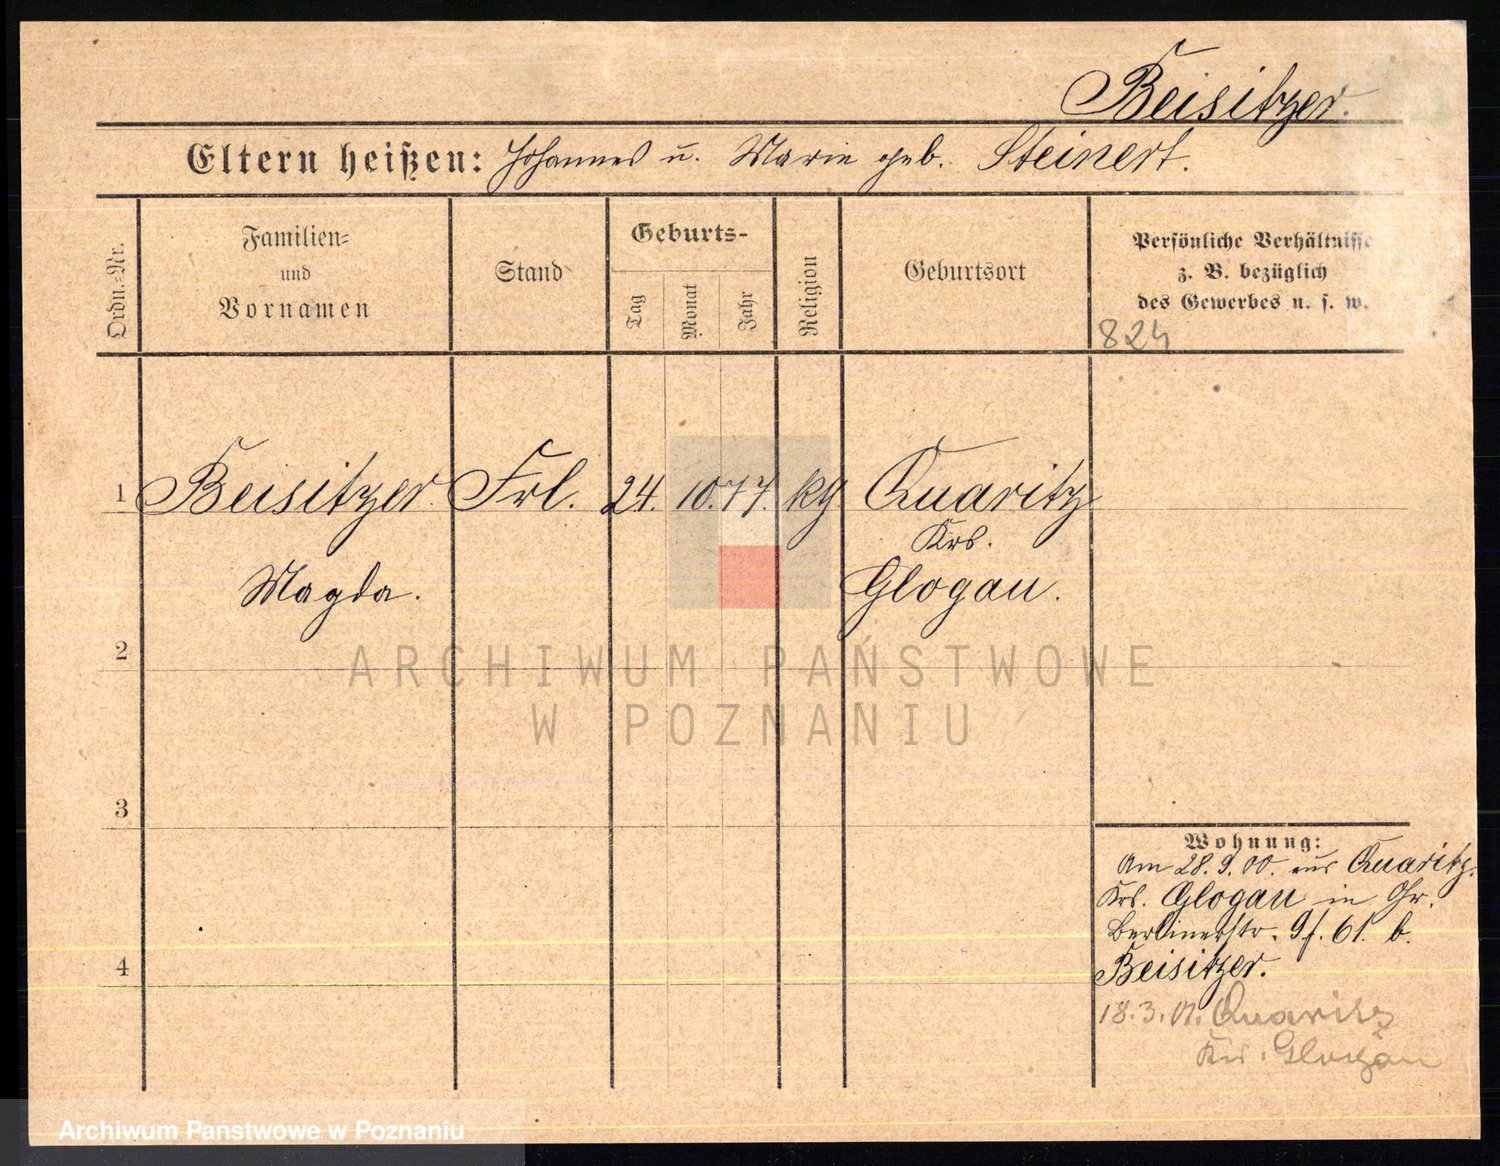 Beisitzer.
Eltern heißen: Johannes u. Marie geb. Steinert.
Ordn.-Nr.
Familien-
und
Vornamen
Stand
Geburts-
Tag
Monat
Jahr
Religion
Geburtsort
Persönliche Verhältnisse
z. B. bezüglich
des Gewerbes u. s. w.
824
1 Beisitzer Frl. 24. 10. 77. kg Quaritz
Krs.
Magda. Glogau.
2
ARCHIWUM PAŃSTWOWE
W POZNANIU
3
Wohnung:
Am 28.9.00. aus Quaritz,
Krs. Glogau in Gr.
Berlinerstr. 61. b.
4
Beisitzer.
18.3.01. Quaritz
Krs. Glogau
Archiwum Państwowe w Poznaniu